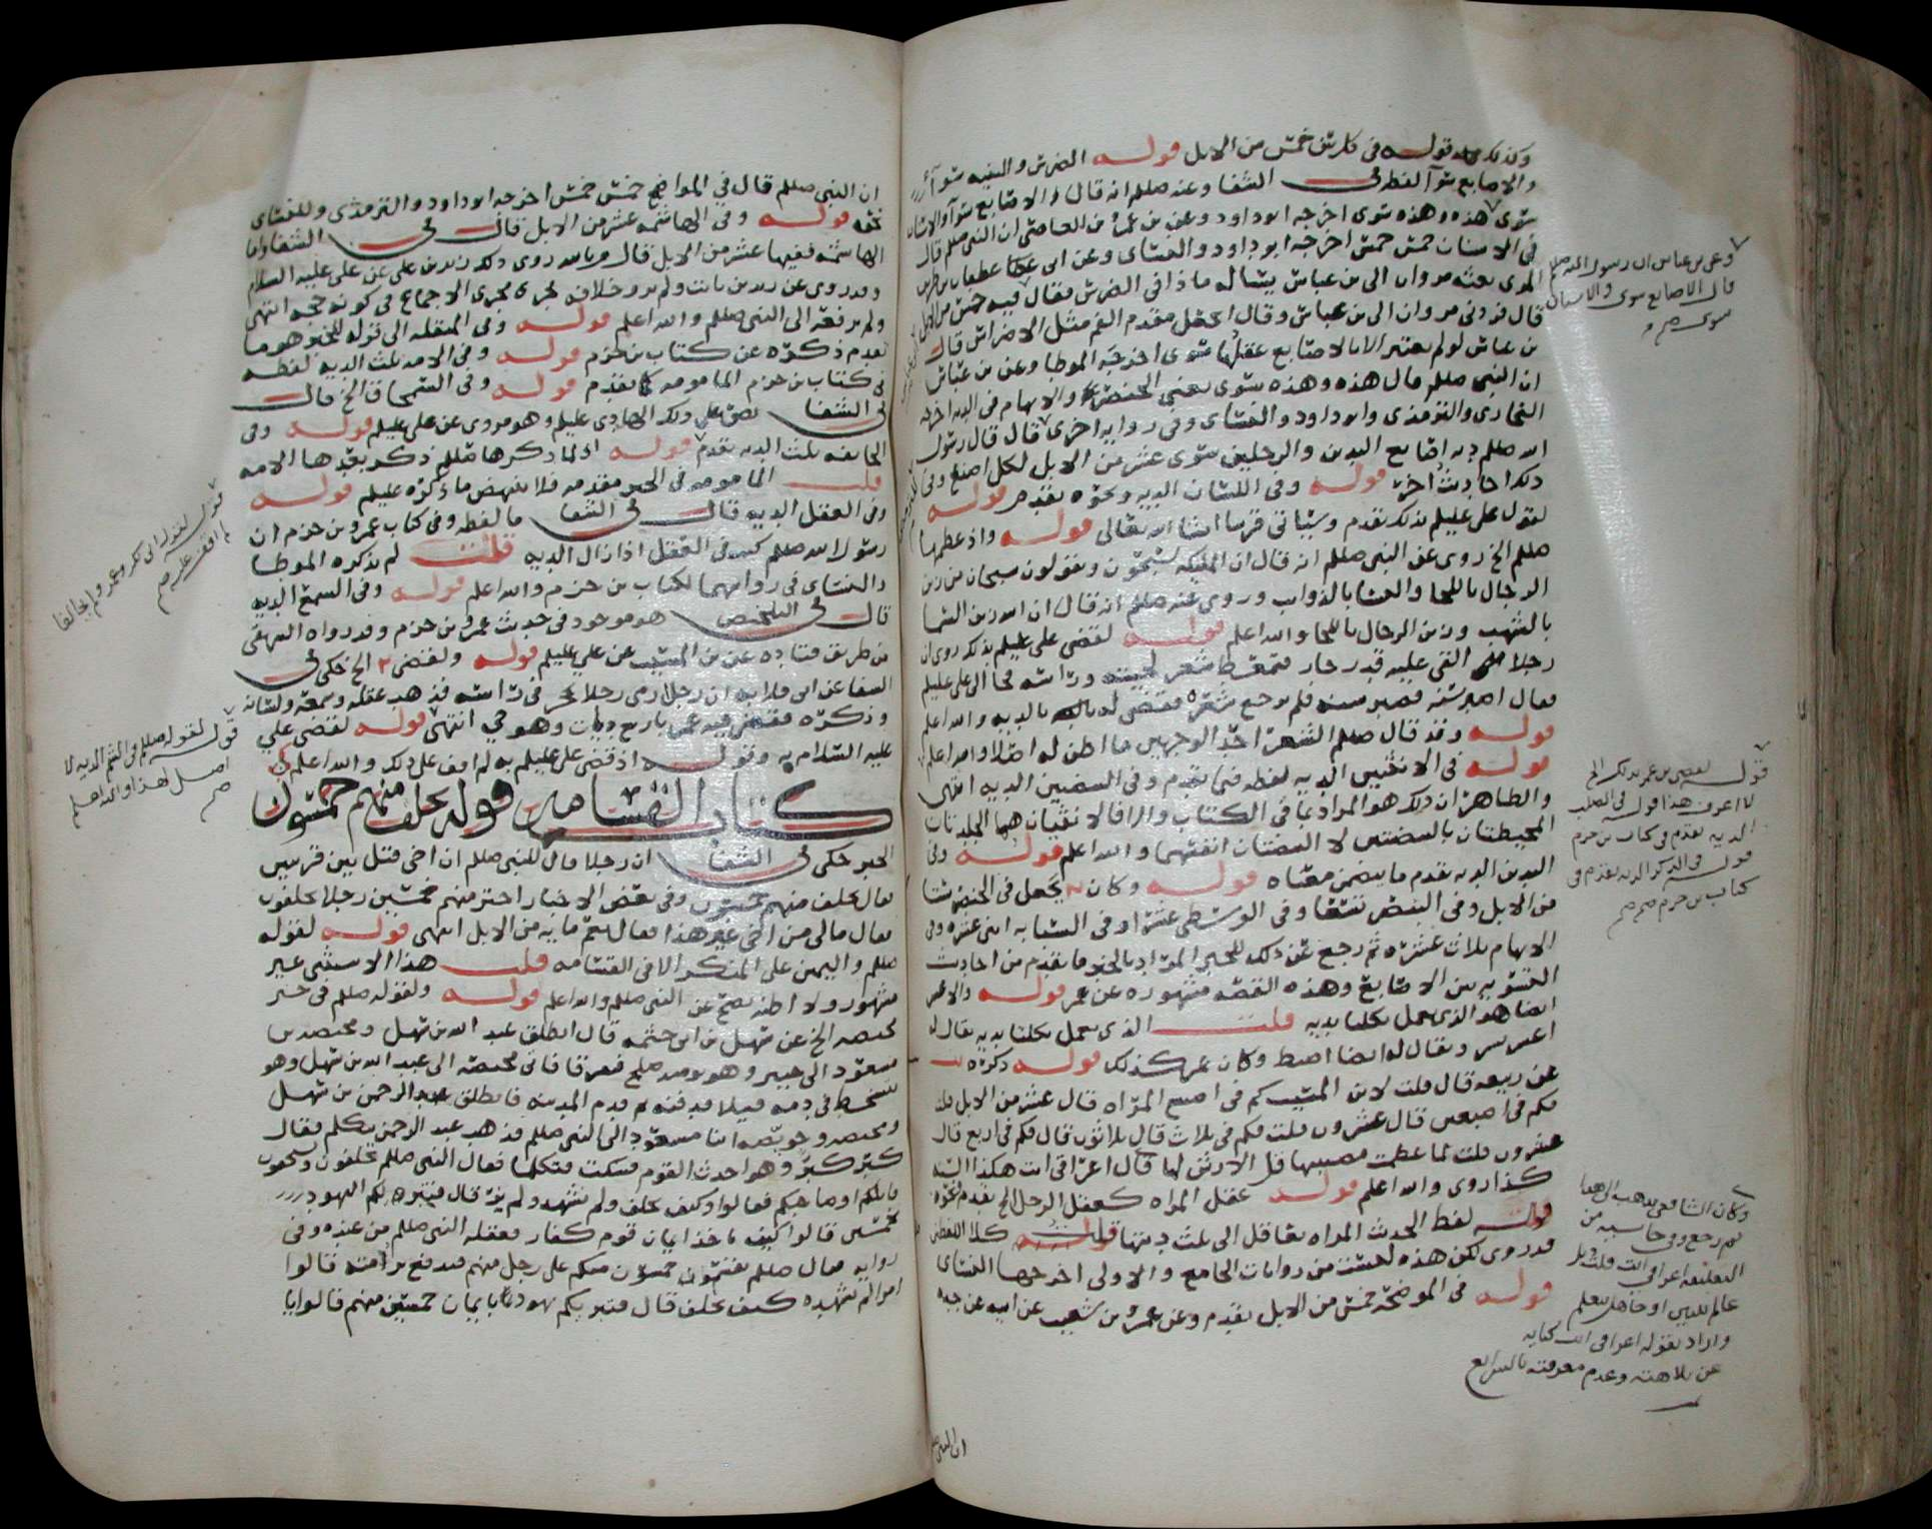 وكذلك قوله في كل سن خمس من الابل قوله الضرس والثنيه سوآ
والاصابع سوآ لفظ في الشفا وعنه صللم انه قال والاصابع سوآ والاسنان
سوى هذه وهذه سوى اخرجه ابو داود وعن بن عمرو بن العاصي ان النبي صللم قال
في الاسنان خمس خمس اخرجه ابو داود والنساى وعن ابى غطفان بن طريف
المرى بعثه مروان الى بن عباس يسأله ماذا في الضرس فقال فيه خمس من الابل
قال فردني مروان الى بن عباس وقال اتجعل مقدم الفم مثل الاضراس قال
بن عباس لو لم يعتبر الا بالاصابع عقلها سوى اخرجه الموطا وعن بن عباس
ان النبي صللم قال هذه وهذه سوى يعني الخنصر والابهام في الديه اخرجه
البخارى والترمذى وابو داود والنساى وفي روايه اخرى قال قال رسول
الله صللم ديه اصابع اليدين والرجلين سوى عشر من الابل لكل اصبع وفي
ذلك احاديث أخر قوله وفي اللسان الديه ونحوه تقدم قوله
لقول علي عليلم بذلك تقدم وسياتي قريبا انشا الله تعالى قوله واذ عظمها
صللم الخ روى عن النبي صللم انه قال ان المليكه يسبحون ويقولون سبحان من زين
الرجال باللحا والنسا بالذوايب وروى عنه صللم انه قال ان الله زين السما
بالشهب وزين الرجال باللحا والله اعلم قوله لقضى علي عليلم بذلك روى ان
رجلا القي عليه قدر حار فتمعط شعر لحيته وراسه فجا الى علي عليلم
فقال اصبر سنه فصبر سنه فلم يرجع شعره فقضى له بالديه والله اعلم
قوله وقد قال صللم الشعر احد الوجهين ما اظن له اصلا والله اعلم
قوله في الانثيين الديه لفظه فيما تقدم وفي البيضتين الديه انتهى
والظاهر ان ذلك هو المراد بما في الكتاب والا فالانثيان هما الجلدتان
المحيطتان بالبيضتين لا البيضتان انفسهما والله اعلم قوله وفي
اليدين الديه تقدم ما يتضمن معناه قوله وكان يجعل في الخنصر ستا
من الابل وفي البنصر تسعا وفي الوسطى عشرا وفي السبابه اثنى عشره وفي
الابهام ثلاث عشره ثم رجع عن ذلك للخبر المراد بالخبر ما تقدم من احاديث
التسويه بين الاصابع وهذه القصه مشهوره عن عمر قوله والاعسر
ايضا هو الذي يعمل بكلتا يديه قلت الذي يعمل بكلتا يديه يقال له
اعسر يسر ويقال له ايضا اضبط وكان عمر كذلك قوله ذكره
عن ربيعه قال قلت لابن المسيب كم في اصبع المراه قال عشر من الابل قلت
فكم في اصبعين قال عشرون قلت فكم في ثلاث قال ثلاثون قال فكم في اربع قال
عشرون قلت لما عظمت مصيبتها قل الارش لها قال اعراقي انت هكذا السنه
كذا روى والله اعلم قوله عقل المراه كعقل الرجل الخ تقدم نحوه
قوله لفظ الحديث المراه تعاقل الى ثلث ديتها قلت كلا اللفظين
قد روى لكن هذه ليست من روايات الجامع والاولى اخرجها النساى
قوله في الموضحه خمس من الابل تقدم وعن عمرو بن شعيب عن ابيه عن جده
ان النبي
وعن بن عباس ان رسول الله صللم
قال الاصابع سوى والاسنان
سوى
قوله لقضى بن عمر بذلك الخ
لا اعرف هذا قوله في الصلب
الديه تقدم في كتاب بن حزم
قوله في الذكر الديه تقدم في
كتاب بن حزم
وكان الشافعي يذهب الى هذا
ثم رجع وفي حاشيه من
التعليقه اعراقي انت قلت بل
عالم تبين او جاهل يتعلم
واراد بقوله اعراقي انت كنايه
عن بلاهته وعدم معرفته بالشرايع
ان النبي صللم قال في المواضح خمس خمس اخرجه ابو داود والترمذى وللنساى
نحوه قوله وفي الهاشمه عشر من الابل قال في الشفا واما
الهاشمه ففيها عشر من الابل قال وبالله روى ذلك زيد بن علي عن علي عليه السلام
وقد روى عن زيد بن ثابت ولم يرو خلافه فجرى مجرى الاجماع في كونه حجه انتهى
ولم يرفعه الى النبي صللم والله اعلم قوله وفي المنقله الى قوله للخبر هو ما
تقدم ذكره عن كتاب بن حزم قوله وفي الامه ثلث الديه لفظه
في كتاب بن حزم المامومه كما تقدم قوله وفي السمحاق الخ قال
في الشفا نص علي ذلك الهادى عليلم وهو مروى عن علي عليلم قوله وفي
الجايفه ثلث الديه تقدم قوله اذ لما ذكرها صللم ذكر بعدها الامه
قلت المامومه في الخبر مقدمه فلا ينهض ما ذكره عليلم قوله
وفي العقل الديه قال في الشفا ما لفظه وفي كتاب عمرو بن حزم ان
رسول الله صللم كتب في العقل اذا زال الديه قلت لم يذكره الموطا
والنساى في روايتهما لكتاب بن حزم والله اعلم قوله وفي السمع الديه
قال في التلخيص هو موجود في حديث عمرو بن حزم وقد رواه البيهقي
من طريق قتاده عن بن المسيب عن علي عليلم قوله ولقضى الخ حكى في
الشفا عن ابى قلابه ان رجلا رمى رجلا بحجر في راسه فذهب عقله وسمعه ولسانه
وذكره فقضى فيه عمر باربع ديات وهو حي انتهى قوله لقضى علي
عليه السلام به وقوله اذ قضى علي عليلم به لم اقف على ذلك والله اعلم
كتاب القسامه قوله يحلف منهم خمسون
الخبر حكى في الشفا ان رجلا قال للنبي صللم ان اخى قتل بين قريتين
فقال يحلف منهم خمسون وفي بعض الاخبار اختر منهم خمسين رجلا يحلفون
فقال مالي من اخي غير هذا فقال نعم مايه من الابل انتهى قوله لقوله
صللم واليمين على المنكر الا في القسامه قلت هذا الاستثنى غير
مشهور ولا اظنه يصح عن النبي صللم والله اعلم قوله ولقوله صللم في خبر
محيصه الخ عن سهل بن ابى حثمه قال انطلق عبد الله بن سهل ومحيصه بن
مسعود الى خيبر وهو يوميذ صلح فتفرقا فاتى محيصه الى عبد الله بن سهل وهو
يتشحط في دمه قتيلا فدفنه ثم قدم المدينه فانطلق عبد الرحمن بن سهل
ومحيصه وحويصه ابنا مسعود الى النبي صللم فذهب عبد الرحمن يتكلم فقال
كبر كبر وهو احدث القوم فسكت فتكلما فقال النبي صللم تحلفون وتستحقون
قاتلكم او صاحبكم فقالوا وكيف نحلف ولم نشهد ولم نر قال فتبريكم اليهود
بخمسين قالوا كيف ناخذ ايمان قوم كفار فعقله النبي صللم من عنده وفي
روايه فقال صللم يقسم خمسون منكم على رجل منهم فيدفع برمته قالوا
امر لم نشهده كيف نحلف قال فتبريكم يهود بايمان خمسين منهم قالوا يا
قوله لفعل ابى بكر وعمر ولم يخالفا
لم اقف عليه
قوله لقوله صللم وفي الشم الديه لا
اصل لهذا والله اعلم